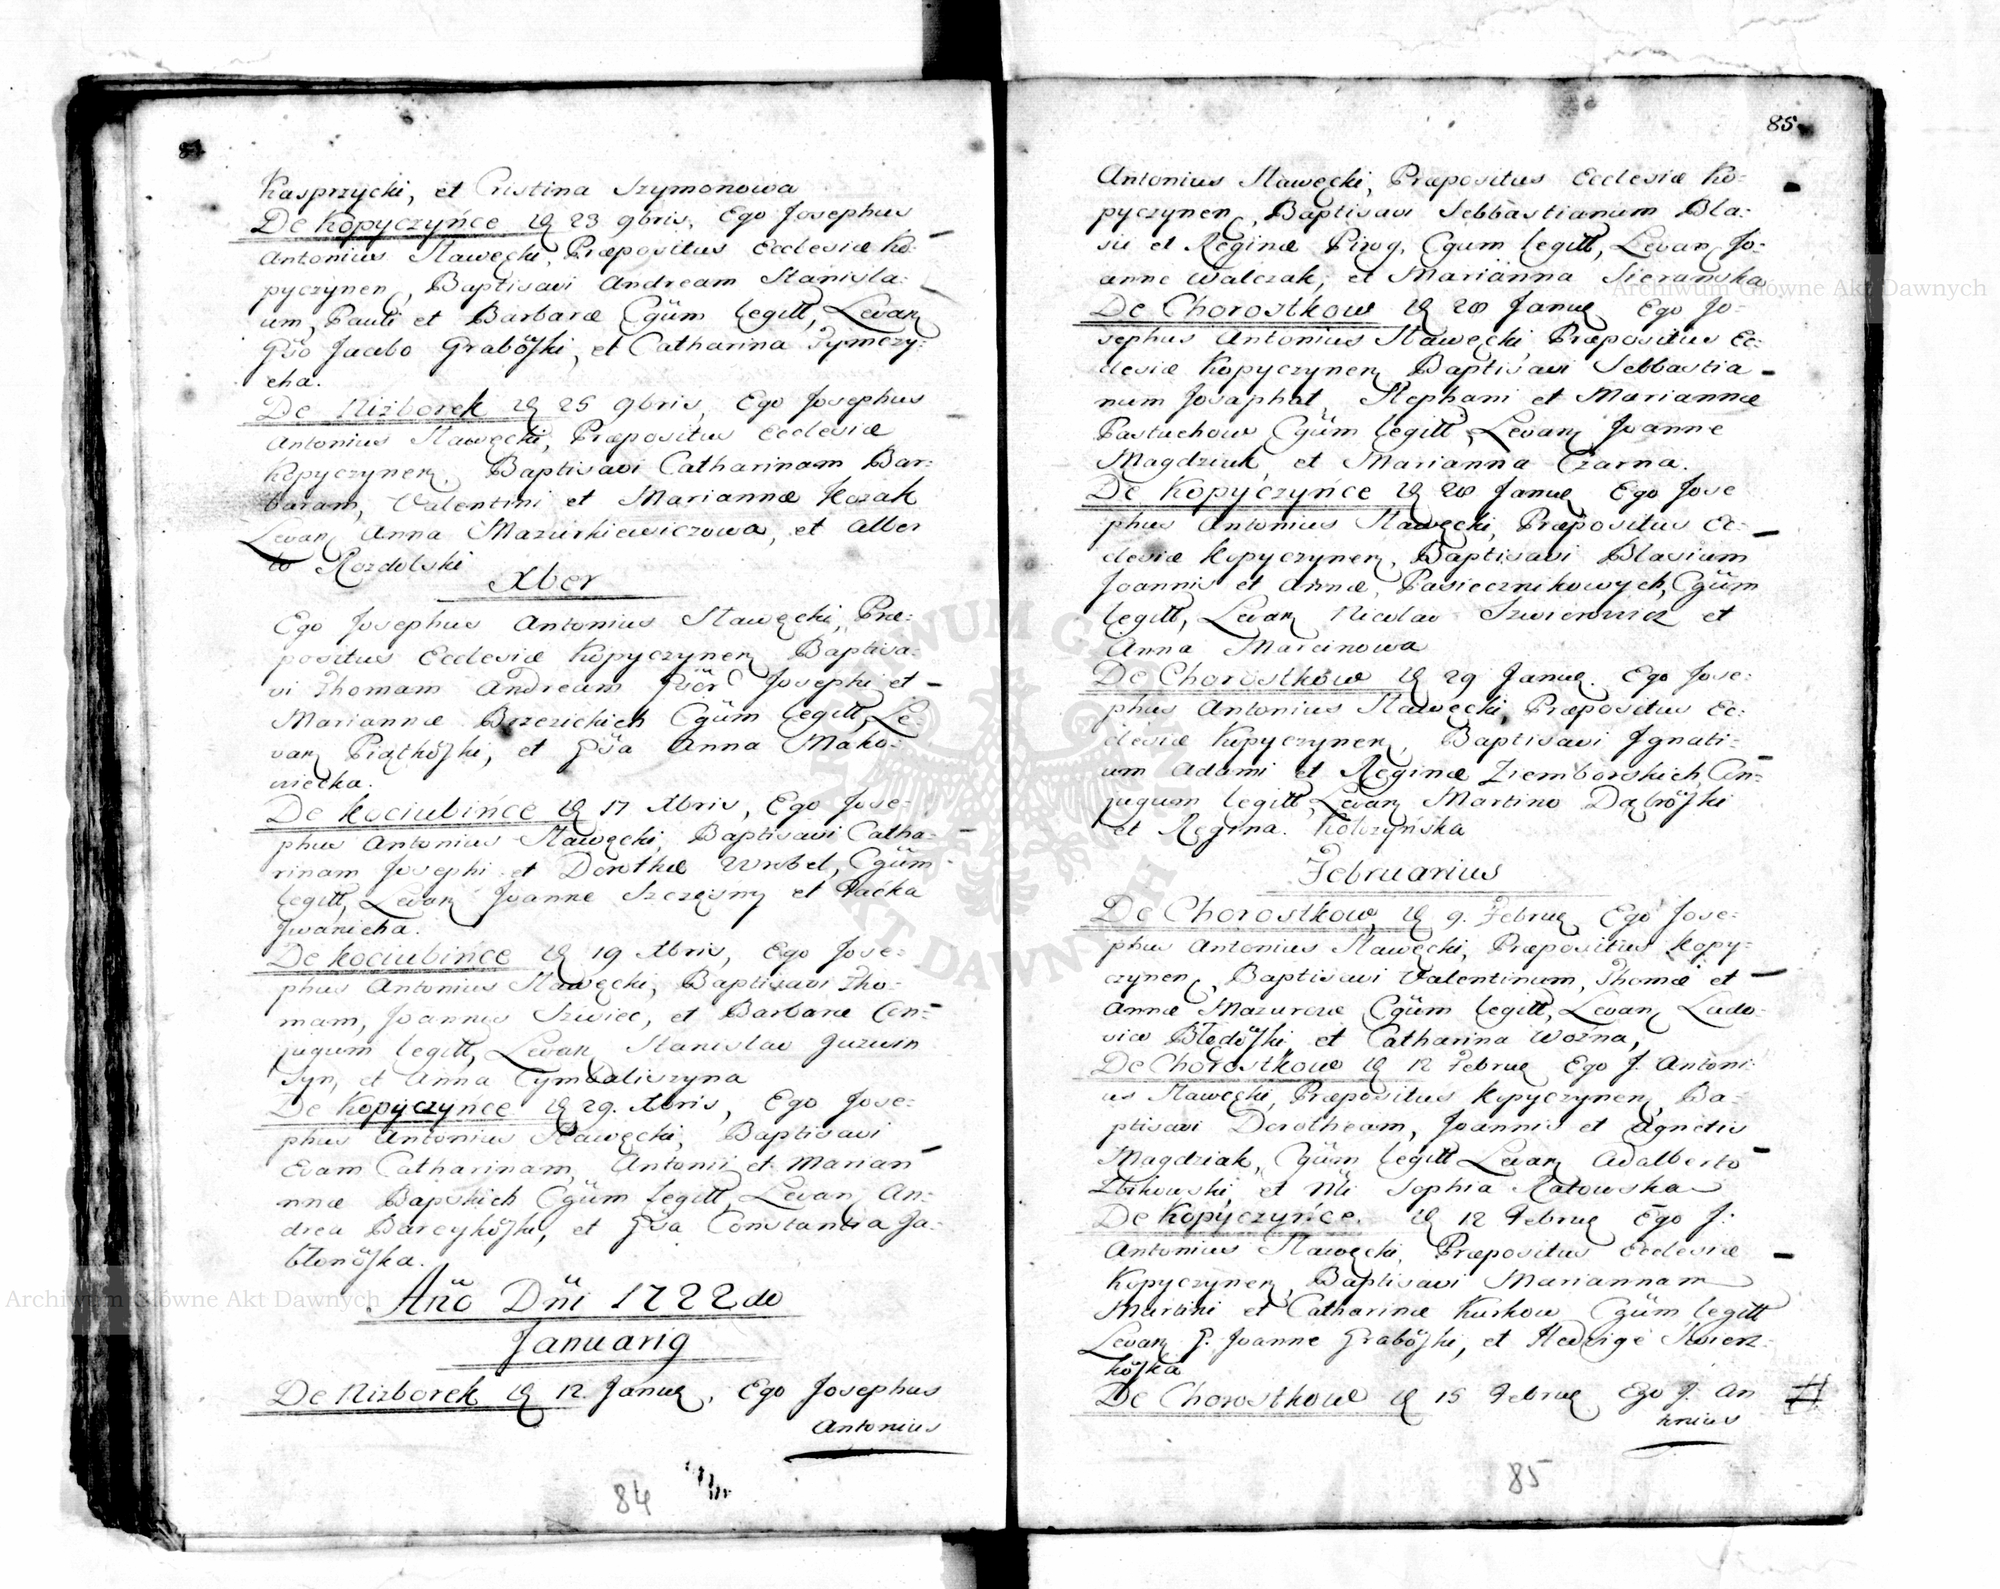 84
Kasprzycki, et Cristina Szymonowa
De Kopyczyńce 23 9bris, Ego Josephus
Antonius Sławęcki, Præpositus Ecclesiæ Ko-
pyczynen, Baptisavi Andream Stanisla-
um, Pauli et Barbaræ Cgum legitt, Levan
Gso Jacobo Grabösski, et Catharina Tymczy-
cha.
De Niżborek 25 9bris, Ego Josephus
Antonius Sławęcki, Præpositus Ecclesiæ
Kopyczynen, Baptisavi Catharinam Bar-
baram, Valentini et Mariannæ Kozak
Levan Anna Mazurkiewiczowa, et Alber
to Rozdolski
Xber
Ego Josephus Antonius Sławęcki, Præ-
positus Ecclesiæ Kopyczynen Baptisa-
vi Thomam Andream Josephi et
Mariannæ Brzezickich Cgum legitt, Le-
van Piątkösski, et Gsa Anna Mako-
wiecka.
De Kociubińce 17 Xbris, Ego Jose-
phus Antonius Sławęcki, Baptisavi Catha-
rinam Josephi et Dorotheæ Wrobel, Cgum
legitt, Levan Joanne Szczęsny et Paćka
Jwanicha.
De Kociubińce 19 Xbris, Ego Jose-
phus Antonius Sławęcki, Baptisavi Tho-
mam, Joannis Szwiec, et Barbaræ Con-
jugum legitt, Levan Stanislao Juzwin
Syn, et Anna Cymbaliszyna
De Kopyczyńce 29. Xbris, Ego Jose-
phus Antonius Sławęcki, Baptisavi
Evam Catharinam, Antonii et Marian
næ Bapskich Cgum legitt, Levan An-
drea Barcykösski, et Gsa Constantia Ja-
błonösska.
Año Dñi 1722do
Januarig
De Niżborek 12. Janua, Ego Josephus
Antonius
84
85
Antonius Sławęcki, Præpositus Ecclesiæ Ko-
pyczynen, Baptisavi Sebbastianum Bla-
sii et Reginæ Pirog, Cgum legitt, Levan Jo-
anne Walczak, et Marianna Sieranska
De Chorostkow 28 Janua Ego Jo-
sephus Antonius Sławęcki, Præpositus Ec-
clesiæ Kopyczynen Baptisavi Sebbastia
num Josaphat Stephani et Mariannæ
Pastuchow Cgum legitt, Levan Joanne
Magdziuk et Marianna Czarna.
De Kopyczyńce 28 Janua Ego Jose
phus Antonius Sławęcki, Præpositus Ec-
clesiæ Kopyczynen, Baptisavi Blasium
Joannis et Annæ, Pasiecznikowych, Cgum
legitt, Levan Nicolao et
Anna Marcinowa
De Chorostkow 29 Janua. Ego Jose-
phus Antonius Sławęcki, Præpositus Ec-
clesiæ Kopyczynen, Baptisavi Jgnati-
um Adami et Reginæ Ziemborskich, Con-
jugum legitt, Levan Martino Dąbrösski
et Regina. Kolczyńska
Februarius
De Chorostkow 9. Februa Ego Jose-
phus Antonius Sławęcki, Præpositus Kopy-
czynen, Baptisavi Valentinum, Thomæ et
Annæ Mazurow Cgum legitt, Levan Ludo-
vico Błędösski, et Catharina Wozna,
De Chorostkow 12 Februa Ego J. Antoni-
us Sławęcki, Præpositus Kopyczynen, Ba-
ptisavi Dorotheam, Joannis et Agnetis
Magdziak, Cgum legitt Levan Adalberto
Zbikowski, et Sophia Ratowska
De Kopyczyńce. 12 Februa Ego J.
Antonius Sławęcki, Præpositus Ecclesiæ
Kopyczynen, Baptisavi Mariannam
Martini et Catharinæ Kurkow, Cgum legitt
Levan G. Joanne Grabösski, et Hedvige Skierz-
kösska
De Chorostkow 15 Februa Ego J. An
tonius
85
Archiwum Główne Akt Dawnych
Archiwum Główne Akt Dawnych
ARCHIWUM GŁÓWNE AKT DAWNYCH